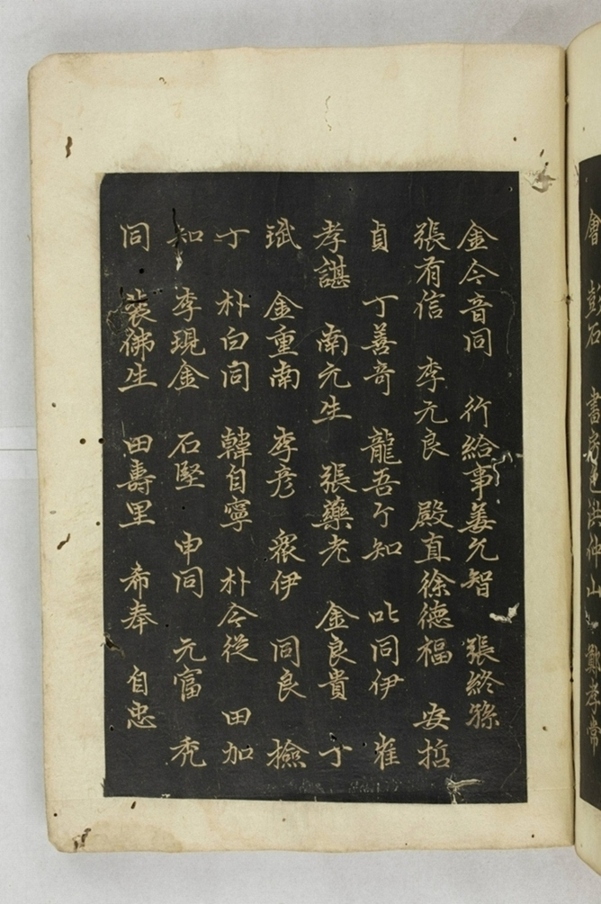 會 彭石 書 洪仲山 孝常
金今音同 行給事姜允智 張終孫
張有信 李元良 殿直徐德福 安哲
貞 丁善奇 龍吾亇知 叱同伊 崔
孝諶 南元生 張藥老 金良貴 丁
斌 金重南 李彦 衆伊 同良 撿
丁 朴白同 韓自寧 朴今従 田加
知 李現金 石堅 申同 元富 禿
同 裴佛生 田壽里 希奉 自忠